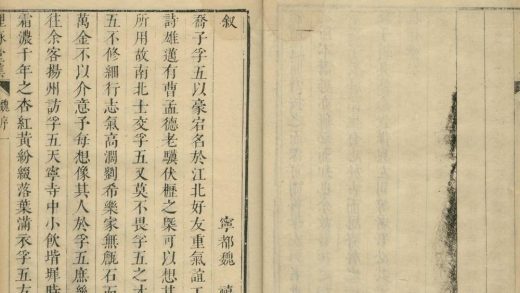 叙
寧都魏
喬子孚五以豪宕名於江北好友重氣誼工
詩雄邁有曹孟德老驥伏櫪之槩可以想其
所用故南北士交孚五又莫不畏孚五之才
五不修細行志氣高濶劉希樂家無甔石而
萬金不以介意予每想像其人於孚五庶幾
往余客揚州訪孚五天寧寺中小飲堦墀時
霜濃千年之杏紅黃紛綴落葉滿衣孚五
魏序 一